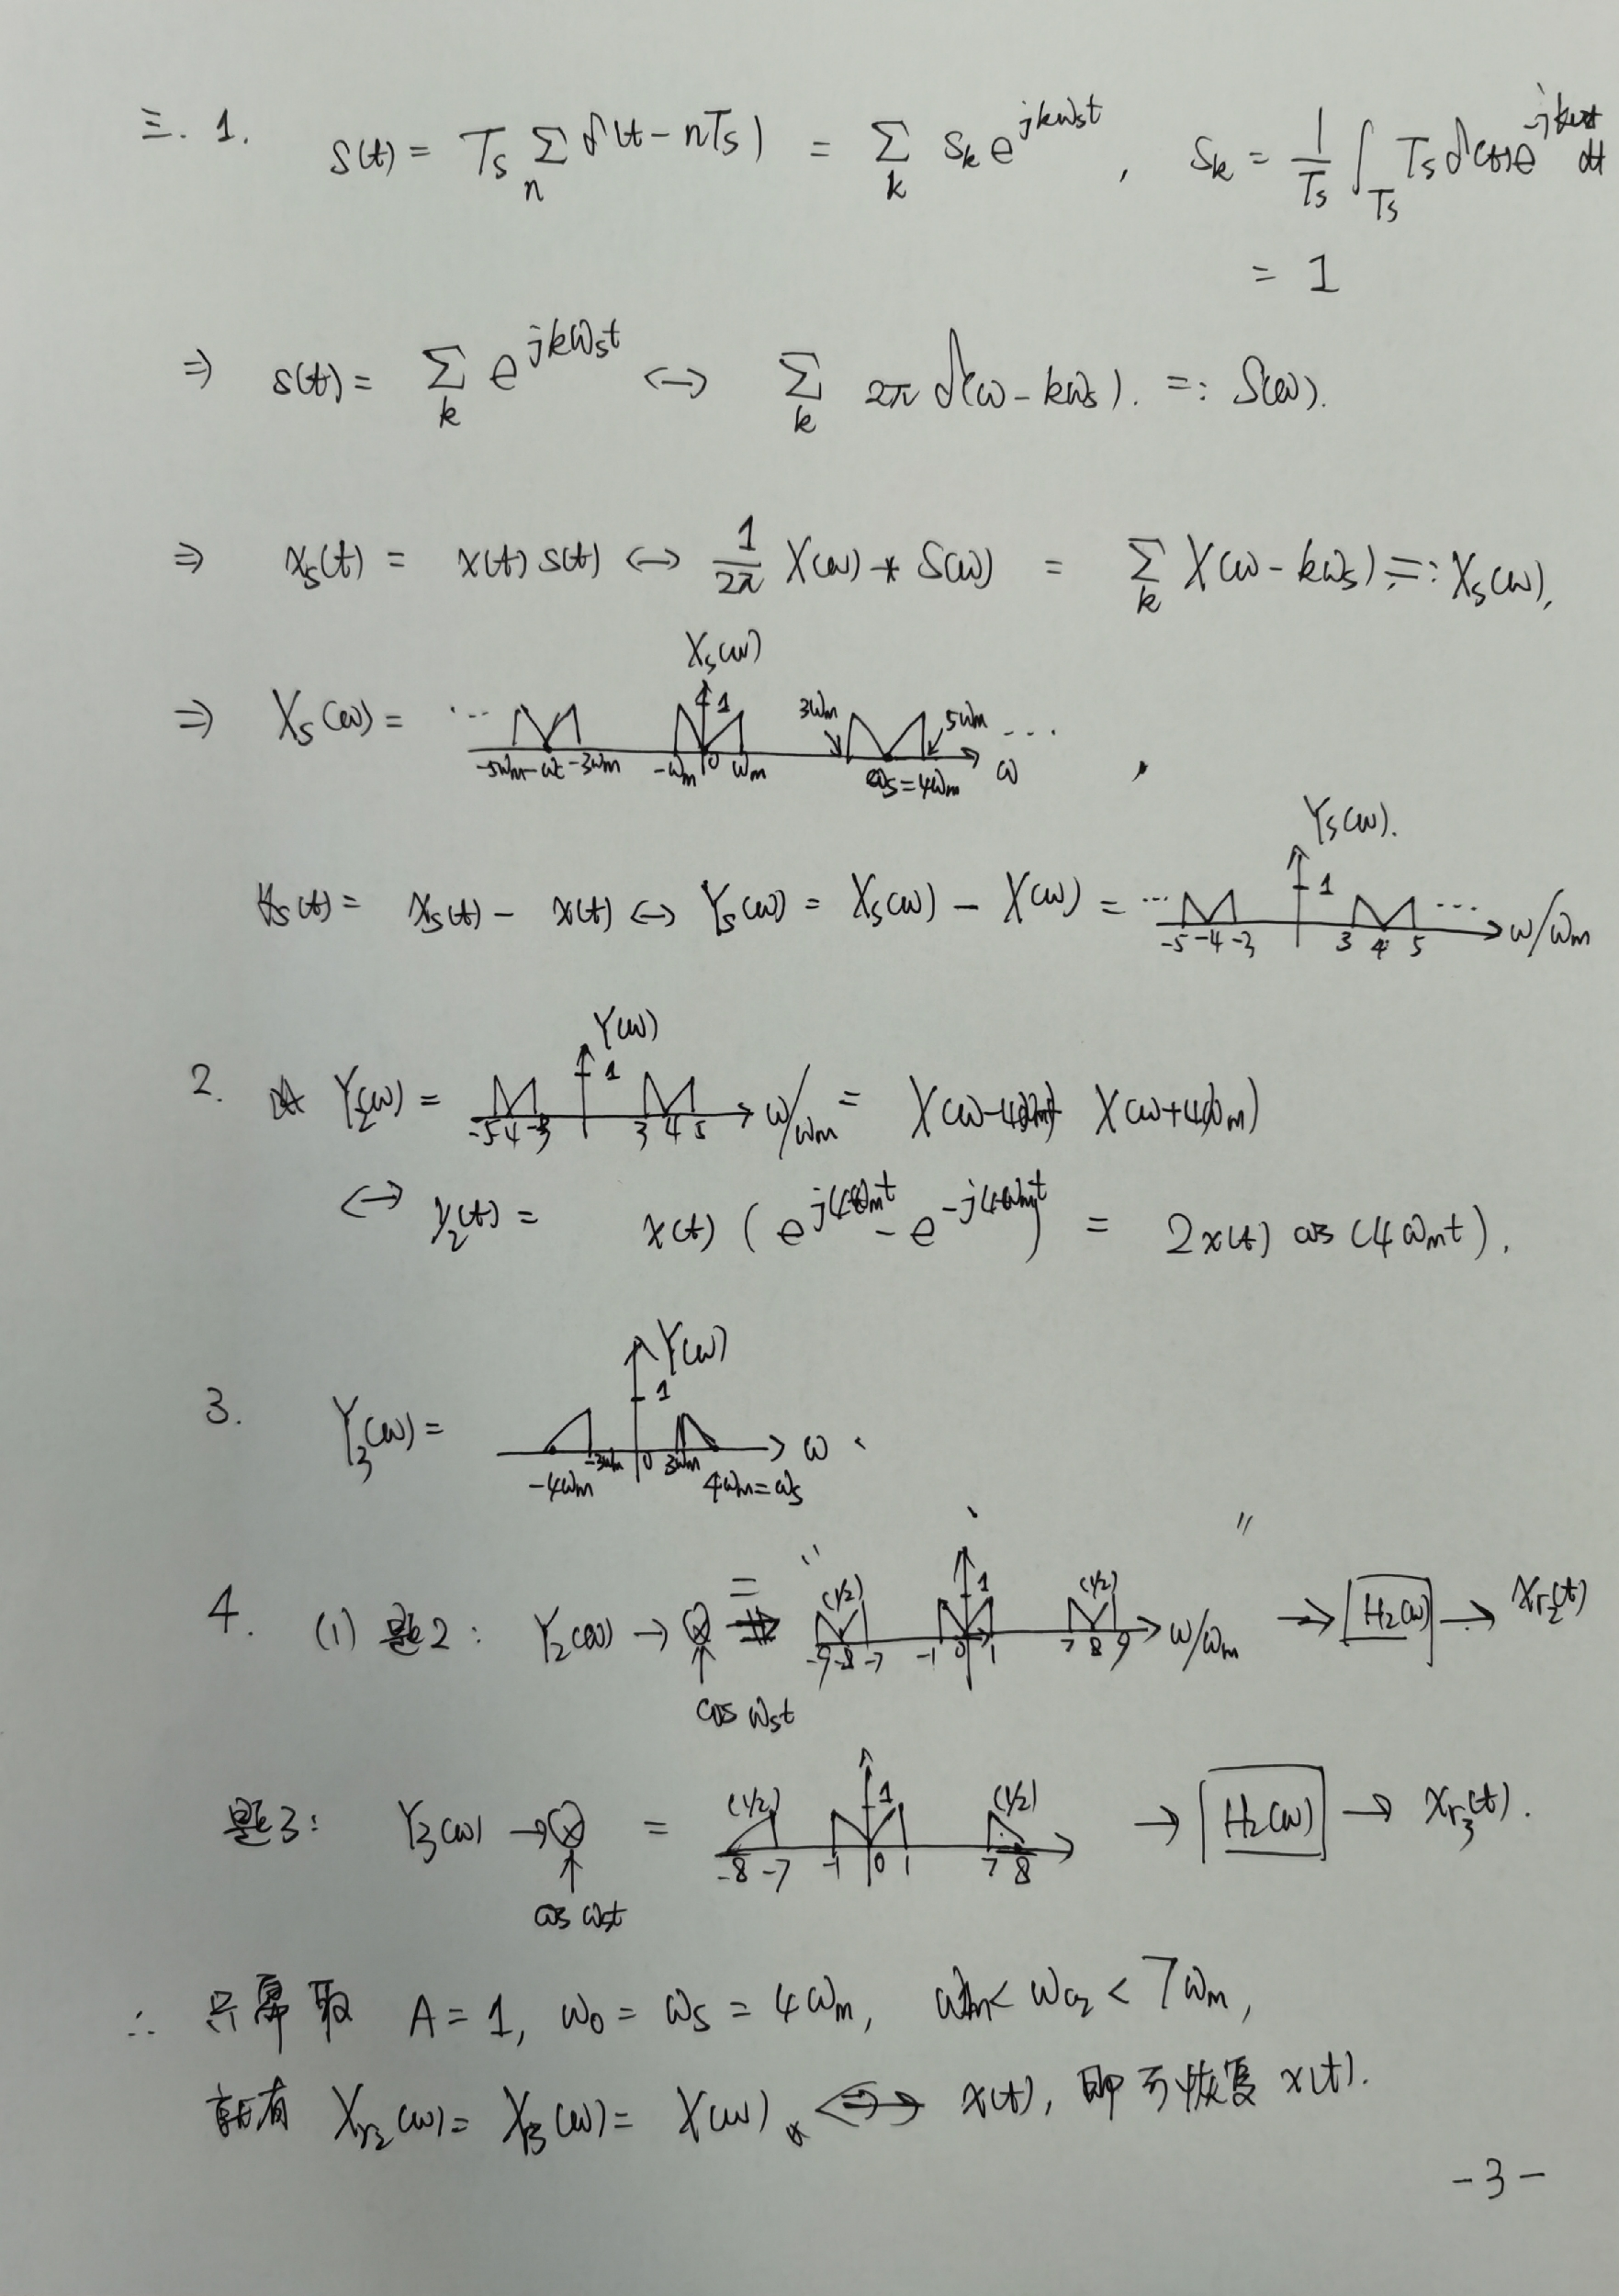 三. 1. s(t) = Ts ∑n δ(t-nTs) = ∑k sk e^{jkωst}, sk = 1/Ts ∫Ts Ts δ(t) e^{-jkωst} dt
= 1
⇒ s(t) = ∑k e^{jkωst} ↔ ∑k 2π δ(ω-kωs). =: S(ω).
⇒ xs(t) = x(t) s(t) ↔ 1/2π X(ω) * S(ω) = ∑k X(ω-kωs) =: Xs(ω),
Xs(ω)
⇒ Xs(ω) = ... 1 3ωm 5ωm ...
-5ωm -ωs -3ωm -ωm 0 ωm ωs=4ωm ω ,
Ys(ω).
ys(t) = xs(t) - x(t) ↔ Ys(ω) = Xs(ω) - X(ω) = ... 1 ...
-5 -4 -3 3 4 5 ω/ωm
Y(ω)
2. Y2(ω) = 1 ω/ωm = X(ω-4ωm) X(ω+4ωm)
-5 -4 -3 3 4 5
↔ y2(t) = x(t) (e^{j4ωmt} - e^{-j4ωmt}) = 2x(t) cos(4ωmt).
Y(ω)
3. Y3(ω) = 1 ω.
-4ωm -3ωm 0 3ωm 4ωm=ωs
4. (1) 题2: Y2(ω) → ⊗ = " (1/2) 1 (1/2) " ω/ωm → H2(ω) → xr2(t)
-9 -8 -7 -1 0 1 7 8 9
cos ωst
题3: Y3(ω) → ⊗ = (1/2) 1 (1/2) → H2(ω) → xr3(t).
-8 -7 -1 0 1 7 8
cos ωst
∴ 只需取 A=1, ω0=ωs=4ωm, ωm<ωc2<7ωm,
就有 Xr2(ω) = Xr3(ω) = X(ω) ↔ x(t), 即可恢复 x(t).
-3-